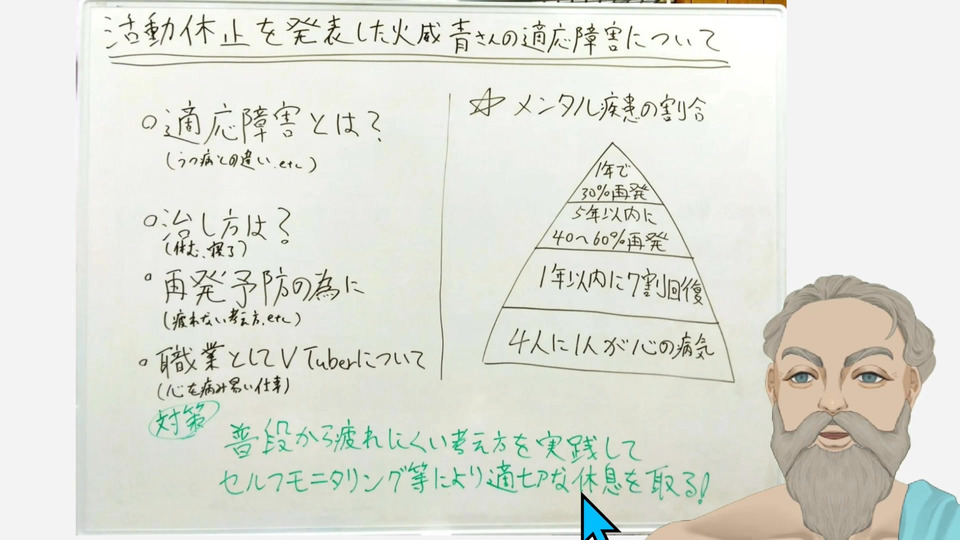 活動休止を発表した火威青さんの適応障害について
○適応障害とは?
(うつ病との違い、etc)
○治し方は?
(休む、寝る)
○再発予防の為に
(疲れない考え方、etc)
○職業としてVTuberについて
(心を病み易い仕事)
☆メンタル疾患の割合
1年で
30%再発
5年以内に
40〜60%再発
1年以内に7割回復
4人に1人が心の病気
対策
普段から疲れにくい考え方を実践して
セルフモニタリング等により適切な休息を取る!